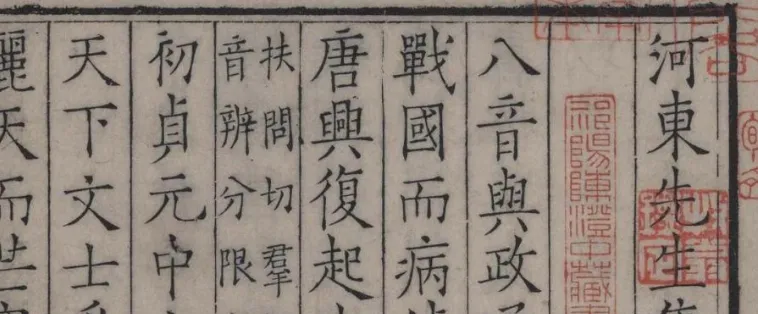 河東先生
祁陽陳澄中藏
八音與政
戰國而病
唐興復起
扶問切羣
音辨分限
初貞元中
天下文士
麗天而